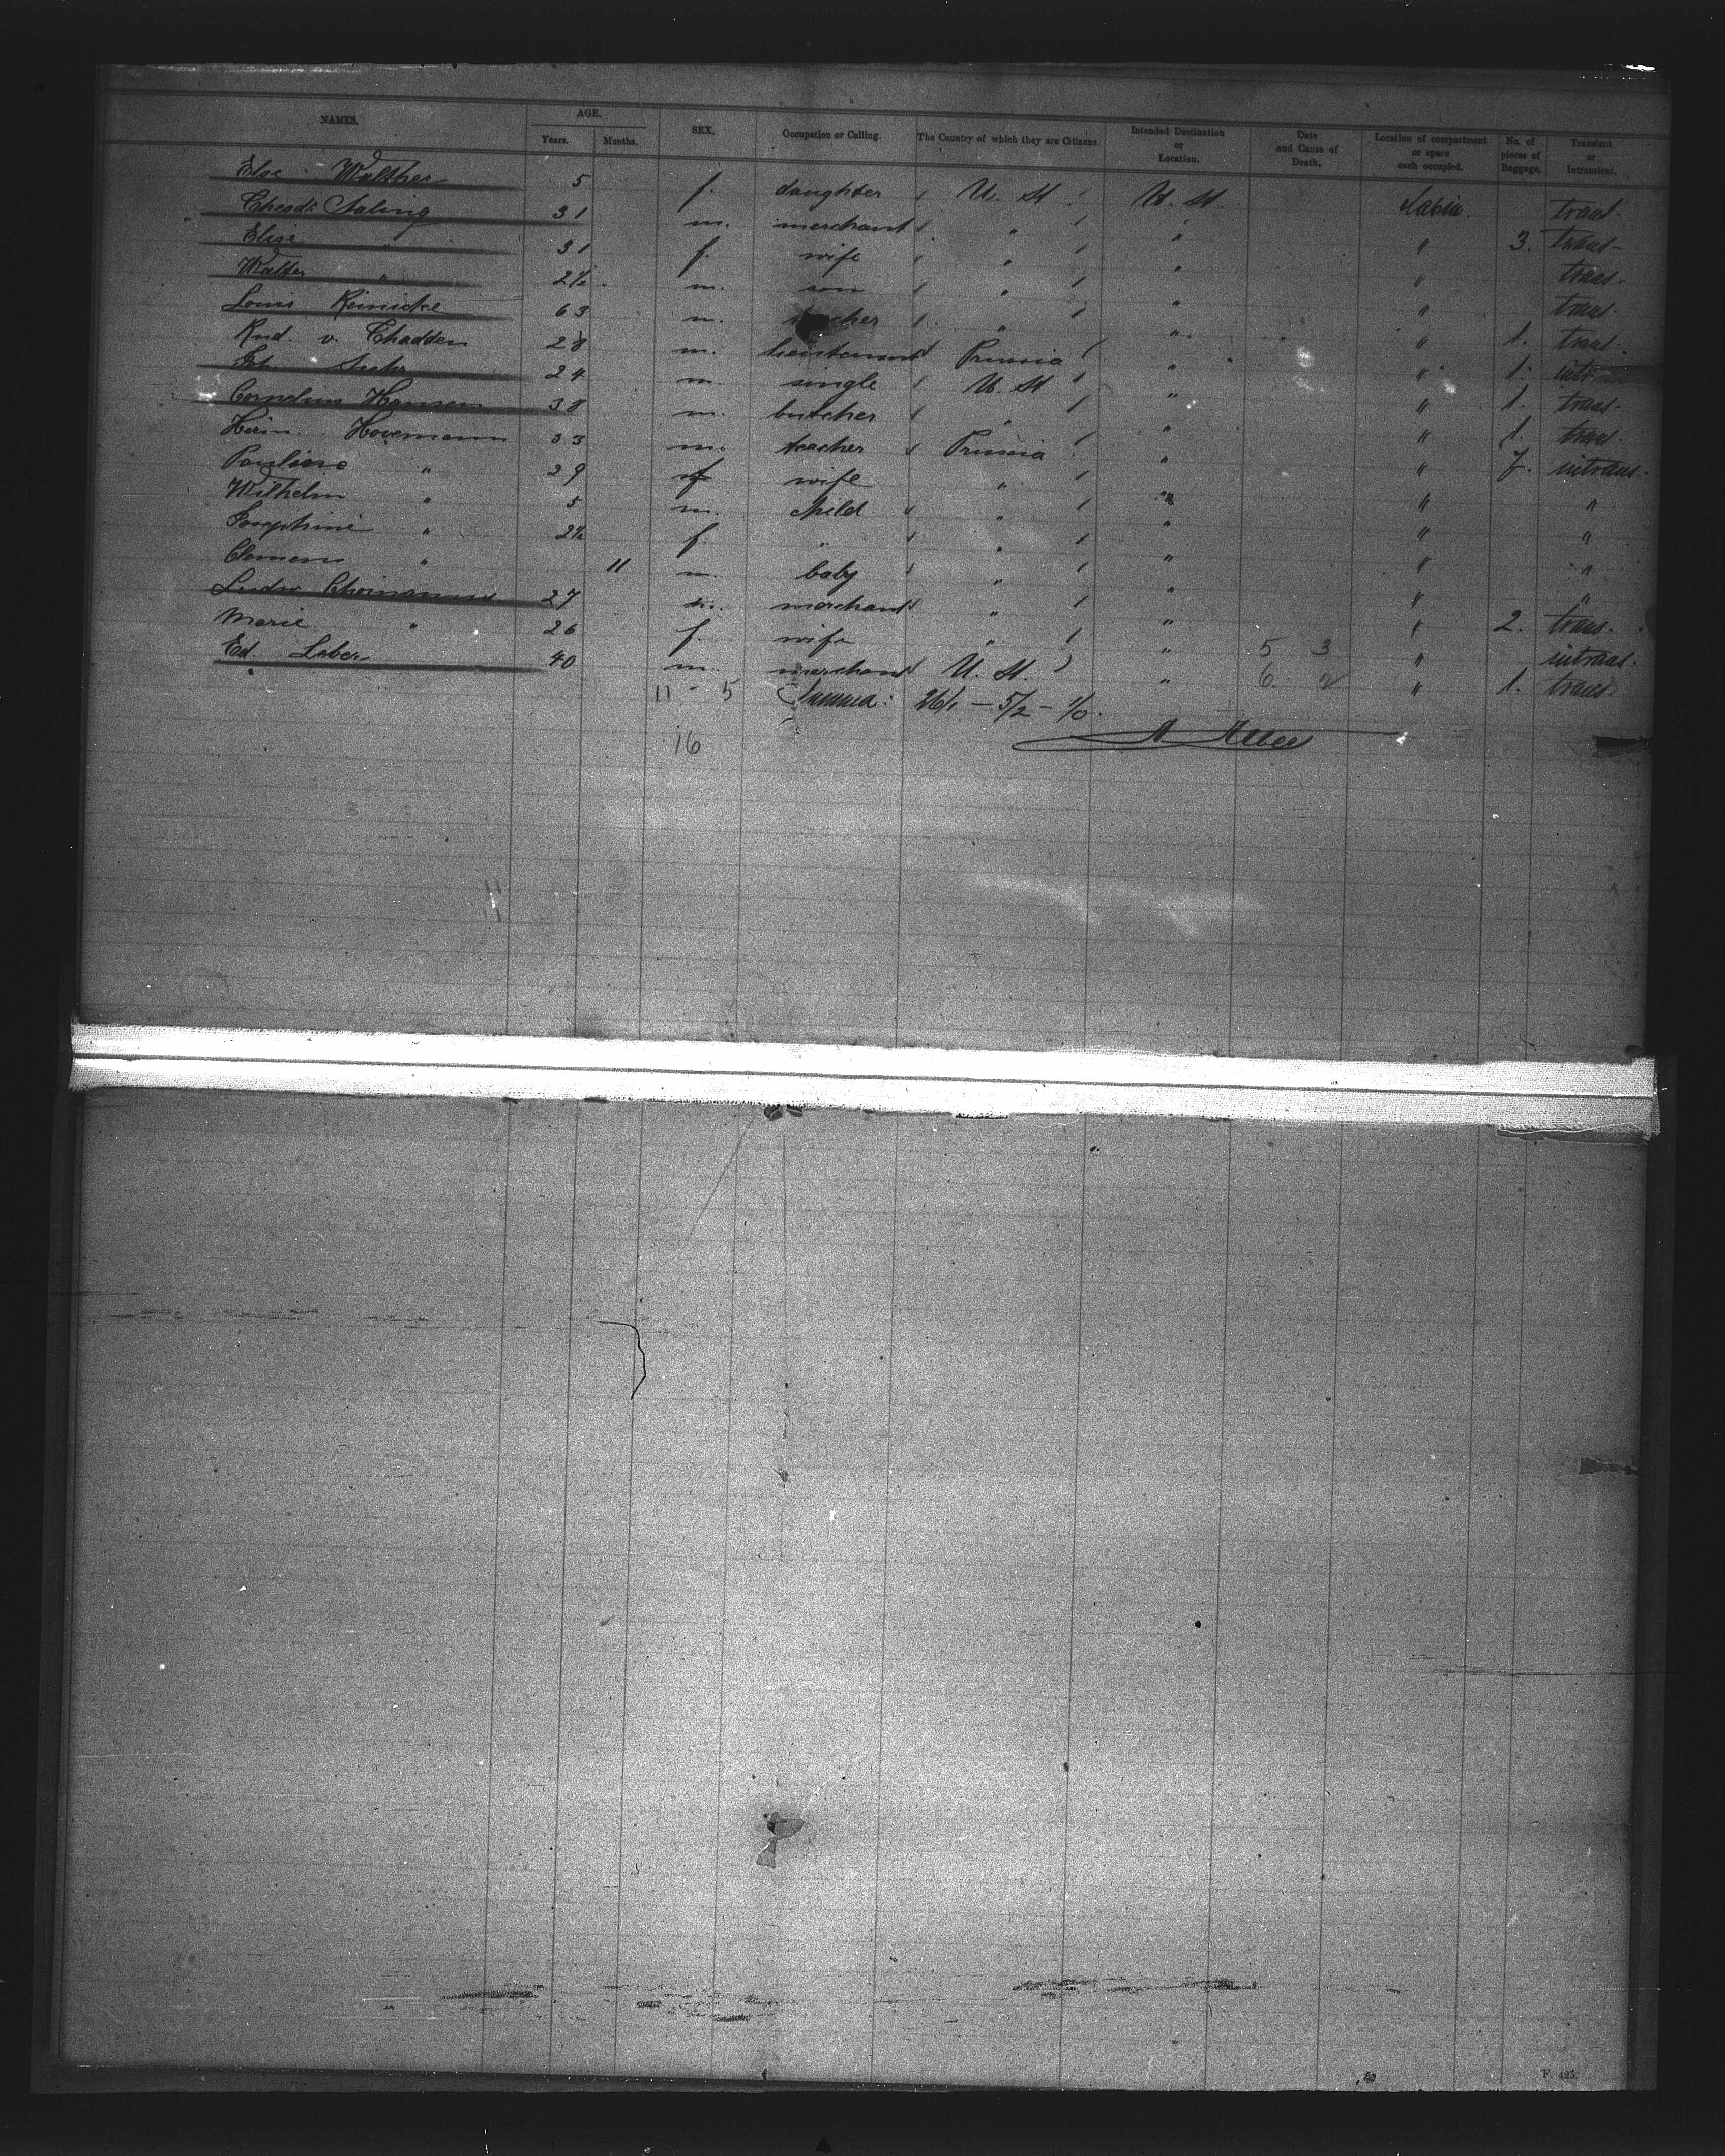 NAMES. AGE. Years. Months. SEX. Occupation or Calling. The Country of which they are Citizens. Intended Destination or Location. Date and Cause of Death. Location of compartment or space each occupied. No. of pieces of Baggage. Transient or Intransient.
Else Walther 5 f. daughter U. St. U. St. Cabin. trans.
Theod. Saling 31 m. merchant " " " 3. trans.
Elise " 31 f. wife " " " trans.
Walter " 2½ m. son " " " trans.
Louis Reinicke 63 m. " " " 1. trans.
Rud. v. Thadden 28 m. lieutenant Prussia " " 1. intrans
24 m. single U. St. " " 1. trans.
Cornelius Hansen 38 m. butcher " " " 1. trans.
Herm. Hovemann 33 m. teacher Prussia " " 7. intrans.
Pauline " 29 f wife " " " "
Wilhelm " 5 m. child " " " "
Josephine " 2½ f. " " " " "
Clemens " 11 m. baby " " " "
27 m. merchant " " " 2. trans.
Marie " 26 f. wife " " 5 3 " intrans.
Ed. Leber 40 m. merchant U. St. " 6 2 " 1. trans.
11 - 5 Summa: 26/1 - 5/2 - 1/0.
16
F. 425.